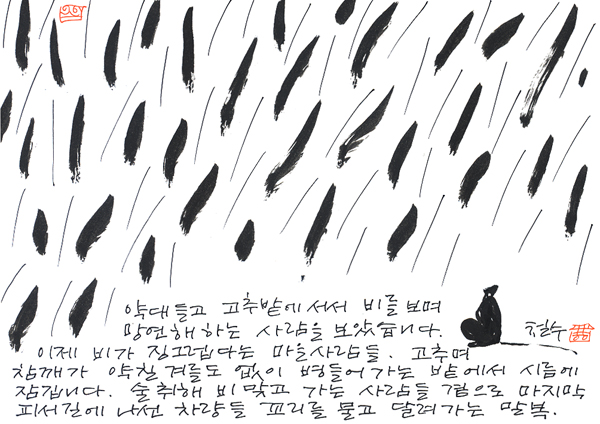 약대들고 고추밭에 서서 비를 보며
망연해 하는 사람을 보았습니다.
이제 비가 징그럽다는 마을사람들. 고추며
참깨가 약칠 겨를도 없이 병들어 가는 밭에서 시름에
잠깁니다. 술취해 비 맞고 가는 사람들 곁으로 마지막
피서길에 나선 차량들 꼬리를 물고 달려가는 말복.
철수